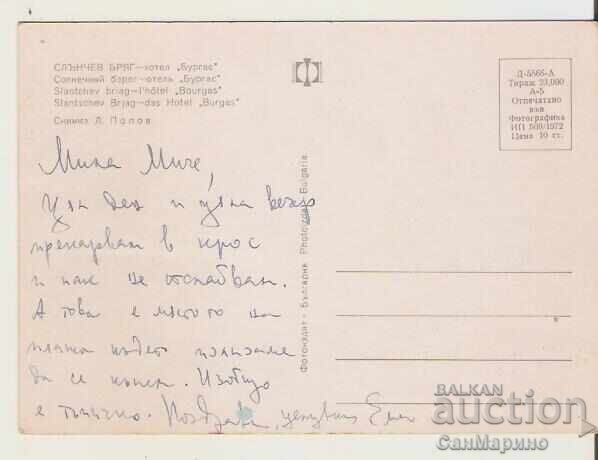 СЛЪНЧЕВ БРЯГ—хотел „Бургас"
Солнечный бэряг—отель „Бургас"
Slantchev briag—l'hôtel „Bourgas"
Slantschev Brjag—das Hotel „Burgas"
Снимка Л. Попов
Д-5866-А
Тираж 23,000
А-5
Отпечатано
във
Фотографика
ИП 500/1972
Цена 10 ст.
Фотоиздат - България Photoizdat - Bulgaria
Мила Миче,
Цял ден и цяла вечер
прекарвам в крос
и пак не отслабвам.
А това е мястото на
плажа където излизаме
да се къпем. Изобщо
е тъпично. Поздрави, целувки
BALKAN
auction
СанМарино